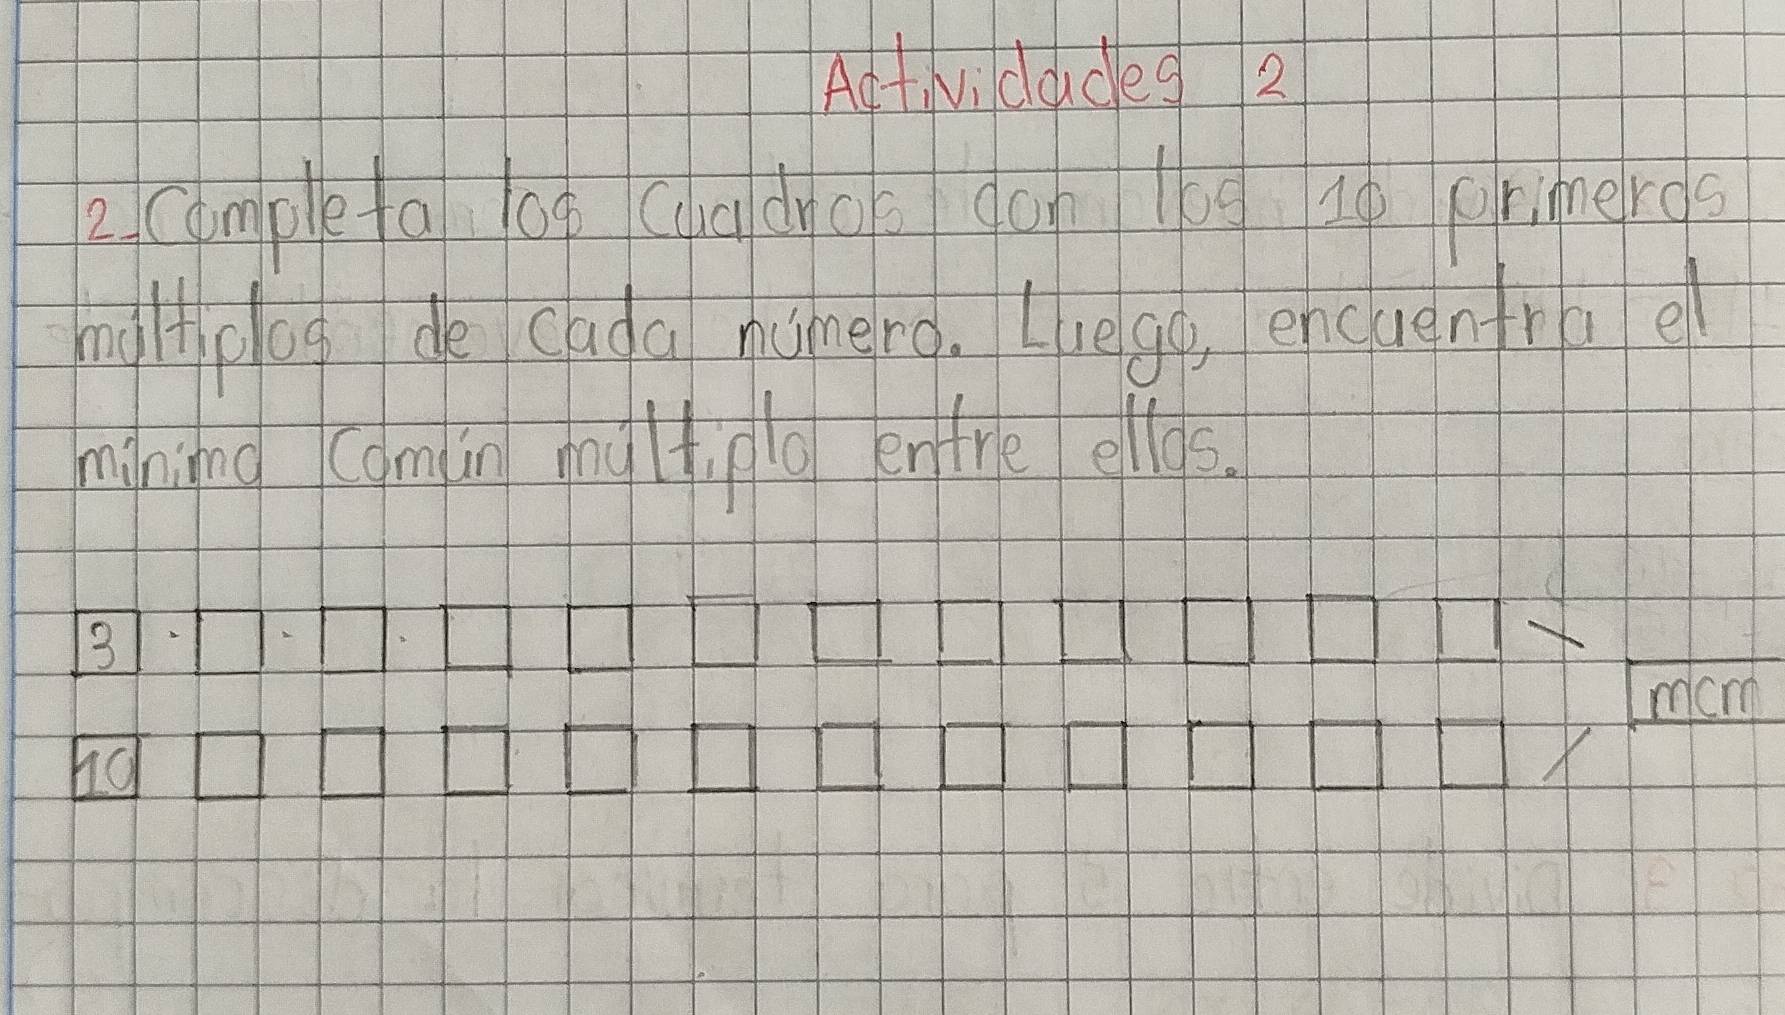 Actividades 2
2-Completa los cuadros con los 10 primeros
múltiplos de cada número. Luego, encuentra el
mínimo común múltiplo entre ellos.
3
mcm
10